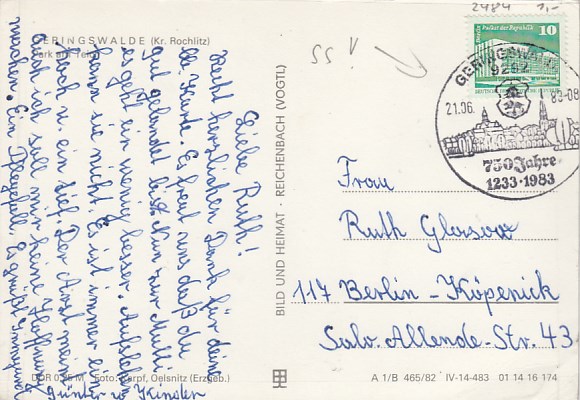 GERINGSWALDE (Kr. Rochlitz)
Park am Teich
Liebe Ruth!
Recht herzlichen Dank für deine
lb. Karte. Es freut uns daß du
gut gelandet bist. Nun zur Mutti
es geht ein wenig besser. Aufstehen
kann sie nicht. Es ist immer ein
Loch u. ein tief. Der Arzt meint
auch ich soll mir keine Hoffnung
machen. Ein Pflegefall. Es grüßt Irmgard
Günter u. Kinder
DDR 0,25 M Foto: Karpf, Oelsnitz (Erzgeb.)
BILD UND HEIMAT · REICHENBACH (VOGTL)
2484 1,-
SS V
Palast der Republik
10
GERINGSWALDE
9262
21.06. 83-08
750 Jahre
1233·1983
Frau
Ruth Glasow
117 Berlin-Köpenick
Salv. Allende-Str. 43
A 1/B 465/82 IV-14-483 01 14 16 174